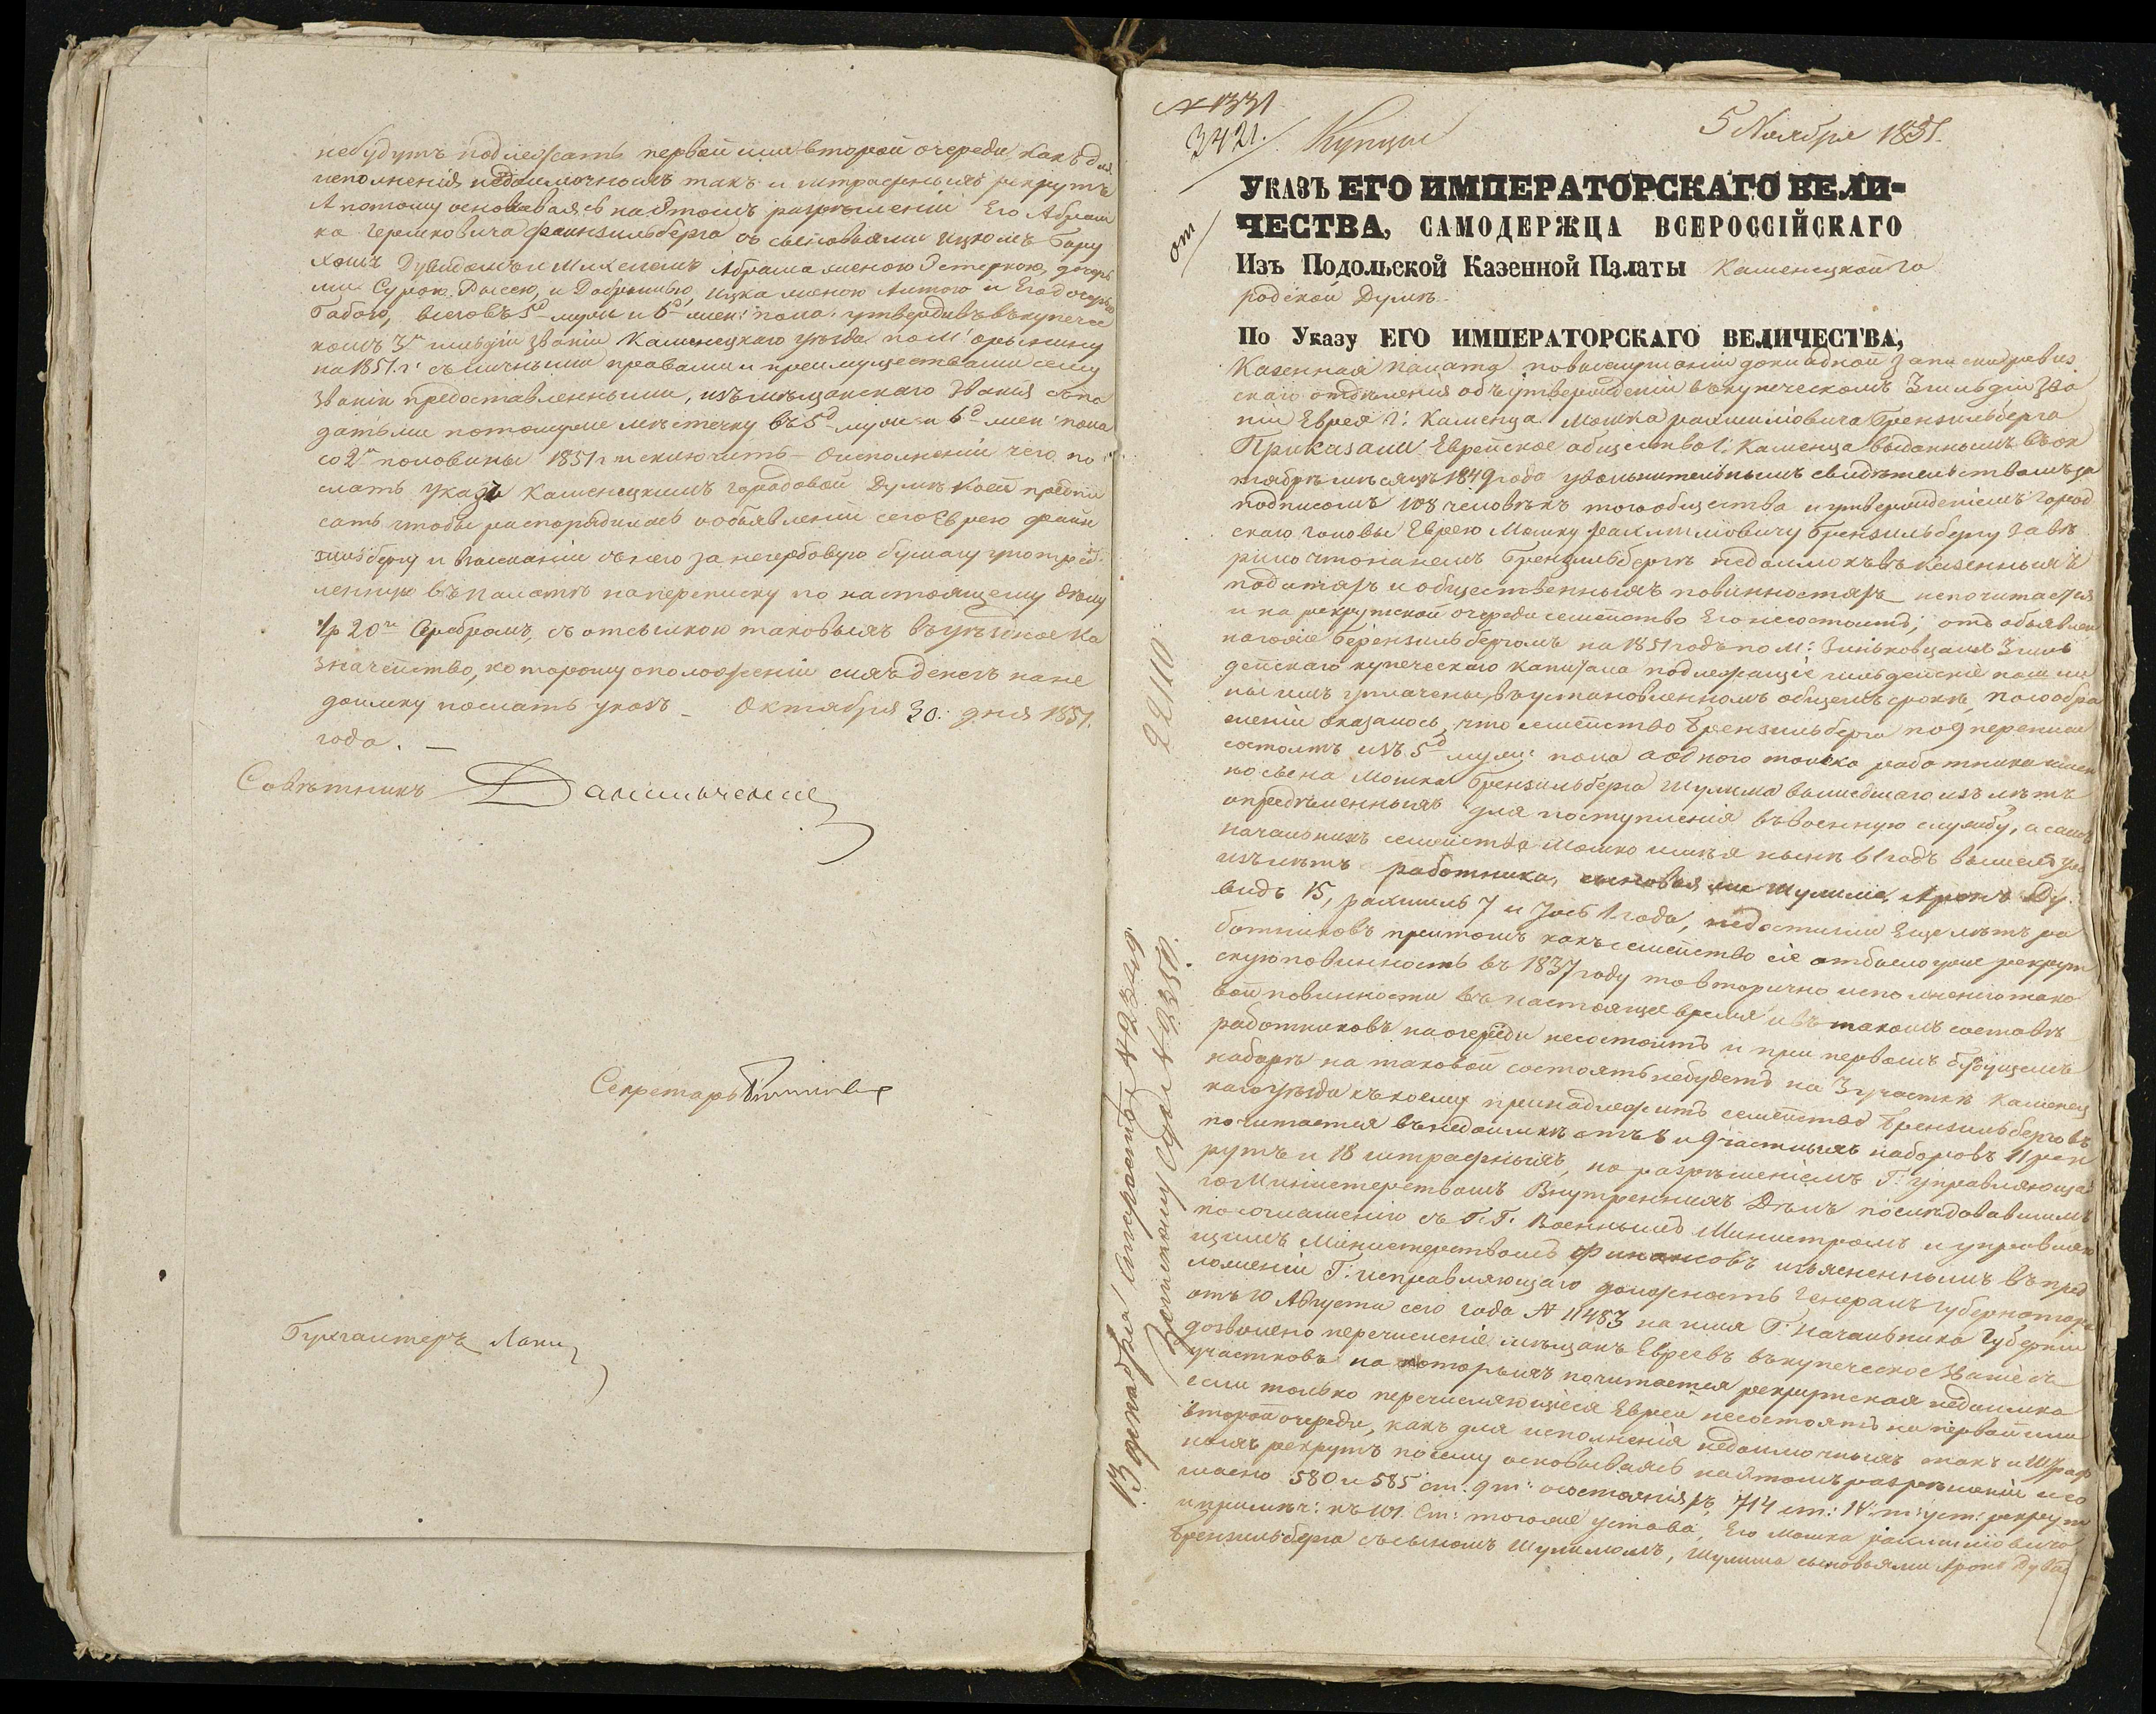 небудутъ подлежать первой или второй очереди какъ для
исполненія недоимочныхъ такъ и штрафныхъ рекрутъ
А потому основываясь на этомъ разрѣшеніи Его Абрам
ка Гершковича Файнзильберга съ сыновьями Ицкомъ Бару
хомъ Дувидомъ и Михелемъ Абрама женою Эстеркою, дочерь
ми Сурою Рысею, и Добрышью, Ицка женою и Его дочерью
Бабою, всего въ 5д муж: и 6д жен: пола: утвердивъ въ купечес
комъ 3й гильдіи званіи Каменецкаго уѣзда по М:
на 1851 г: съ личными правами и преимуществами сему
званію предоставленными, изъ мѣщанскаго званія съ по
датьми потомуже мѣстечку въ 5д муж: и 6д жен: пола
со 2й половины 1851 г исключить О исполненіи чего по
слать указъ Каменецкимъ городовой Думѣ коей предпи
сать чтобы распорядилась о объявленіи сего Еврею Файн
зильбергу и взысканіи съ него за негербовую бумагу употреб
ленную въ палатѣ на переписку по настоящему дѣлу
1р 20 к Серебромъ, съ отсылкою таковыхъ въ уѣздное Ка
значейство, которому о положеніи сихъ денегъ на не
доимку послать указъ Октября 30. дня 1851.
года.
Совѣтникъ
Секретарь
Бухгалтеръ
№ 1331
3421.
Купцы
5 Ноября 1851.
от
УКАЗЪ ЕГО ИМПЕРАТОРСКАГО ВЕЛИ-
ЧЕСТВА, САМОДЕРЖЦА ВСЕРОССІЙСКАГО
Изъ Подольской Казенной Палаты Каменецкой Го
родской Думѣ
По Указу ЕГО ИМПЕРАТОРСКАГО ВЕЛИЧЕСТВА,
Казенная палата по выслушаніи докладной записки ревиз
скаго отдѣленія объ утвержденіи въ купеческомъ 3 гильдіи зва
ніи Еврея Г: Каменца Мошка Рахмиловича Брензильберга
Приказали: Еврейское общество Г: Каменца выданнымъ въ ок
тябрѣ мѣсяцѣ 1849 года увольнительнымъ свидѣтельствомъ за
подписомъ 108 человѣкъ того общества и утвержденіемъ Город
скаго Головы Еврею Мошку Рахмиловичу Брензильбергу завѣ
рило что на немъ Брензильбергѣ недоимокъ въ казенныхъ
податяхъ и общественныхъ повинностяхъ непочитается
и на рекрутской очереди семейство Его несостоитъ; отъ объявлен
наго же Брензильбергомъ на 1851 годъ по М: Зиньковцамъ 3 гиль
дейскаго купеческаго капитала подлежащіе гильдейскіе пошли
ны имъ уплачены въ установленномъ общемъ срокѣ, по сообра
женіи оказалось, что семейство Брензильберга по 9 переписи
состоитъ изъ 5д муж: пола а одного только работника имен
но сына Мошка Брензильберга Шулима вышедшаго изъ лѣтъ
опредѣленныхъ для поступленія въ военную службу, а самъ
начальникъ семейства Мошко имѣя нынѣ 61 годъ вышелъ уже
изъ лѣтъ работника, сыновья же Шулима, Аронъ Ду
видъ 15, Рахмиль 7 и Іось 1 года, недостигли еще лѣтъ ра
ботниковъ притомъ какъ семейство сіе отбыло уже рекрут
скую повинность въ 1837 году то вторично исполненію тако
вой повинности въ настоящее время и въ такомъ составѣ
работниковъ на очереди несостоитъ и при первомъ будущемъ
наборѣ на таковой состоять небудетъ на 3 участкѣ Каменец
каго уѣзда къ коему принадлежитъ семейство Брензильберговъ
почитается въ недоимкѣ отъ 8 и 9 частныхъ наборовъ 11 рек
рутъ и 18 штрафныхъ, но разрѣшеніемъ Г: управляюща
го Министерствомъ Внутреннихъ Дѣлъ послѣдовавшимъ
по соглашенію съ Г.Г. Военнымъ Министромъ и управляю
щимъ Министерствомъ Финансовъ изъясненнымъ въ пред
ложеніи Г: исправляющаго должность Генералъ Губернатора
отъ 10 Августа сего года № 11483 на имя Г: начальника Губерніи
дозволено перечисленіе мѣщанъ Евреевъ въ купеческое званіе съ
участковъ на которыхъ почитается рекрутская недоимка
если только перечисляющіеся Евреи несостоятъ на первой или
второй очереди, какъ для исполненія недоимочныхъ такъ и штраф
ныхъ рекрутъ посему основываясь на этомъ разрѣшеніи и со
гласно 580 и 585 ст: 9 т: о состояніяхъ, 714 ст: IV: т: уст: рекрут
и примѣч: къ 101. Ст: того же устава, Его Мошка Рахмиловича
Брензильберга съ сыномъ Шулимомъ, Шулима сыновьями Арон Дувид
22110
13 декабря Стряпчему № 2349
Земскому Суду № 2350.